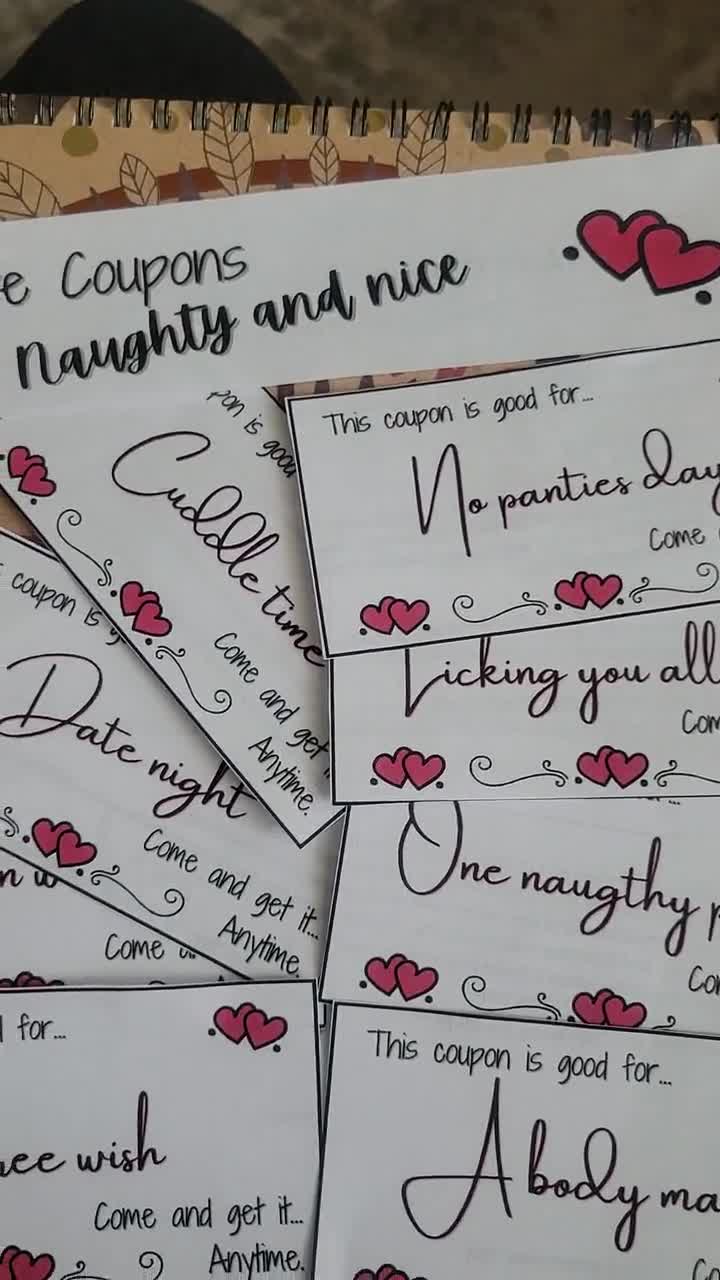 Coupons
Naughty and nice
This coupon is good for...
No panties day
Come
is good
Cuddle time
Come and get
Anytime.
Licking you all
coupon is
Date night
Come and get it...
Anytime.
One naugthy
Come
for...
wish
Come and get it...
Anytime.
This coupon is good for...
A body